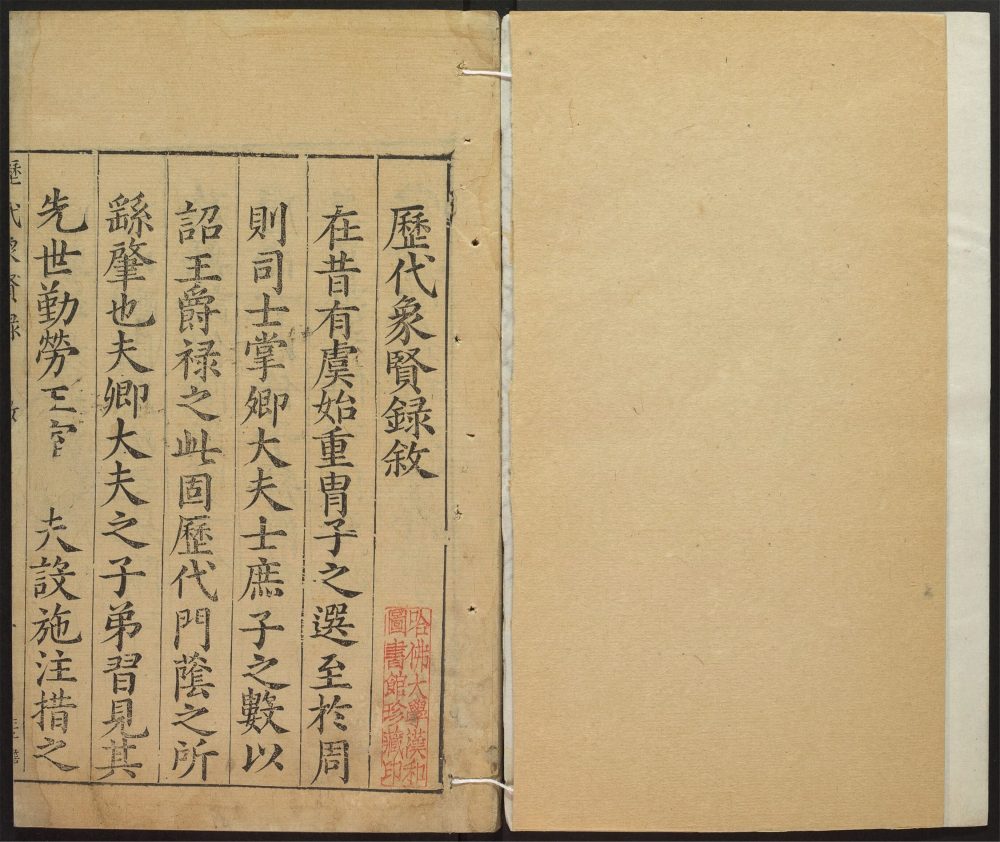 歷代象賢録敘
在昔有虞始重冑子之選至於周
則司士掌卿大夫士庶子之數以
詔王爵禄之此固歷代門蔭之所
繇肇也夫卿大夫之子弟習見其
先世勤勞王室 夫設施注措之
歷代象賢録
哈佛大學漢和
圖書館珍藏印